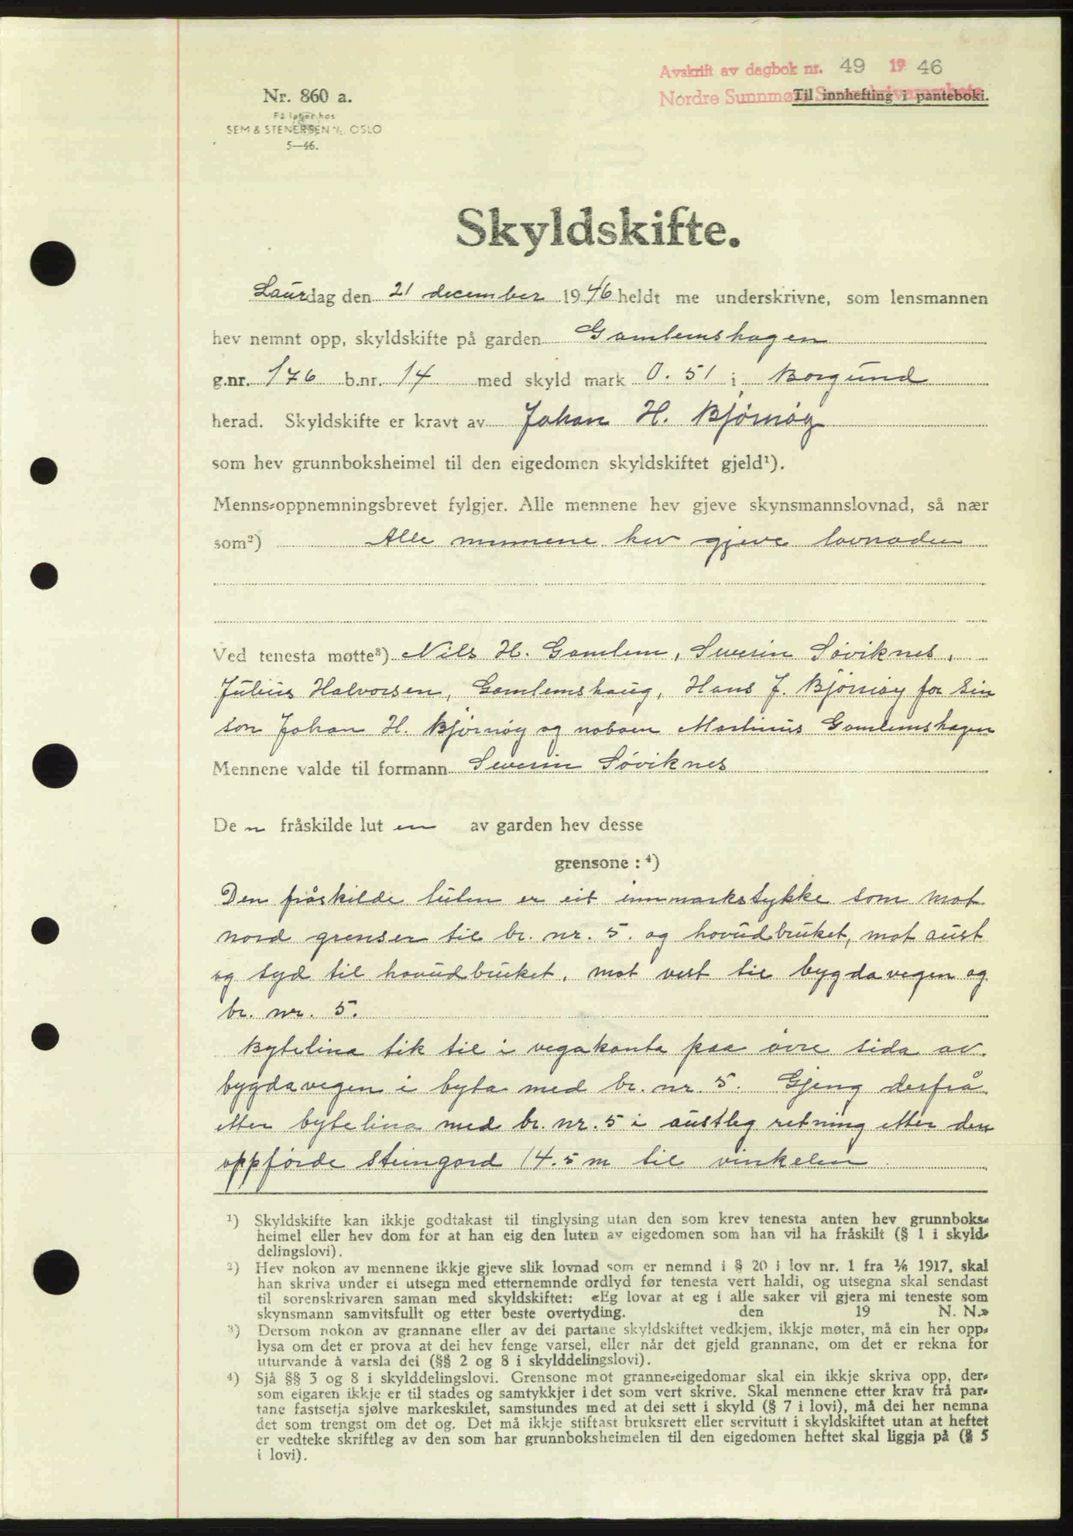 Avskrift av dagbok nr. 49 1946
Nordre Sunnmøre Sorenskrivarembete
Til innhefting i panteboki.
Nr. 860 a.
Få i øjer hos
SEM & STENERSEN A/S, OSLO
5—46.
Skyldskifte.
Laurdag den 21 december 1946 heldt me underskrivne, som lensmannen
hev nemnt opp, skyldskifte på garden Gamlemshagen
g.nr. 176 b.nr. 14 med skyld mark 0.51 i Borgund
herad. Skyldskifte er kravt av Johan H. Bjørnøy
som hev grunnboksheimel til den eigedomen skyldskiftet gjeld¹).
Menns-oppnemningsbrevet fylgjer. Alle mennene hev gjeve skynsmannslovnad, så nær
som²) Alle mennene hev gjeve lovnaden
Ved tenesta møtte³) Nils H. Gamlem, Severin Søviknes,
Julius Halvorsen, Gamlemshaug, Hans J. Bjørnøy for sin
son Johan H. Bjørnøy og naboen Martinus Gamlemshagen
Mennene valde til formann Severin Søviknes
Den fråskilde luten av garden hev desse
grensone : ⁴)
Den fråskilde luten er eit innmarkstykke som mot
nord grenser til br. nr. 5. og hovudbruket, mot aust
og syd til hovudbruket, mot vest til bygdavegen og
br. nr. 5.
Bytelina tek til i vegakanta paa øvre sida av
bygdavegen i byta med br. nr 5. Gjeng derfrå
etter bytelina med br. nr. 5 i austleg retning etter den
oppførde steingard 14.5 m til vinkelen
¹) Skyldskifte kan ikkje godtakast til tinglysing utan den som krev tenesta anten hev grunnboks-
heimel eller hev dom for at han eig den luten av eigedomen som han vil ha fråskilt (§ 1 i skyld-
delingslovi).
²) Hev nokon av mennene ikkje gjeve slik lovnad som er nemnd i § 20 i lov nr. 1 fra 1/6 1917, skal
han skriva under ei utsegn med etternemnde ordlyd før tenesta vert haldi, og utsegna skal sendast
til sorenskrivaren saman med skyldskiftet: «Eg lovar at eg i alle saker vil gjera mi teneste som
skynsmann samvitsfullt og etter beste overtyding. den 19 N. N.»
³) Dersom nokon av grannane eller av dei partane skyldskiftet vedkjem, ikkje møter, må ein her opp-
lysa om det er prova at dei hev fenge varsel, eller når det gjeld grannane, om det er rekna for
uturvande å varsla dei (§§ 2 og 8 i skylddelingslovi).
⁴) Sjå §§ 3 og 8 i skylddelingslovi. Grensone mot granne-eigedomar skal ein ikkje skriva opp, der-
som eigaren ikkje er til stades og samtykkjer i det som vert skrive. Skal mennene etter krav frå par-
tane fastsetja sjølve markeskilet, samstundes med at dei sett i skyld (§ 7 i lovi), må dei her nemna
det som trengst om det og. Det må ikkje stiftast bruksrett eller servitutt i skyldskiftet utan at heftet
er vedteke skriftleg av den som har grunnboksheimelen til den eigedomen heftet skal liggja på (§ 5
i lovi).